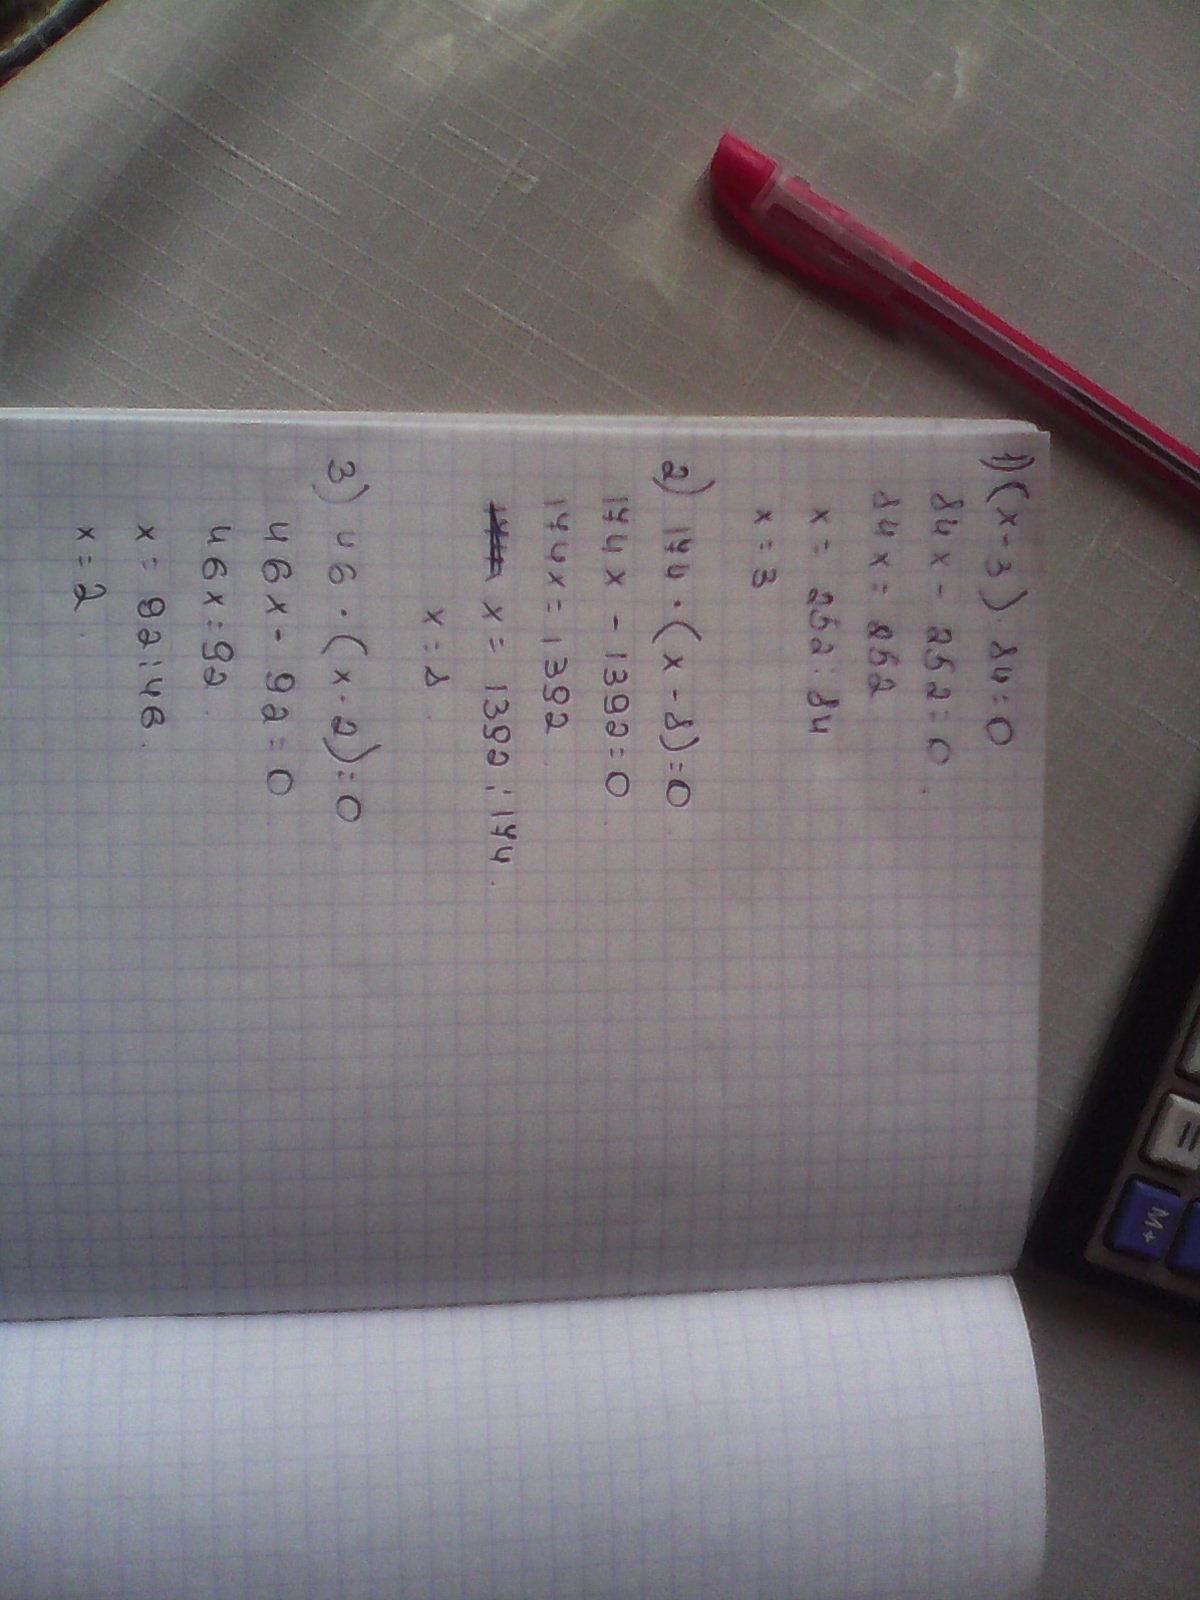 1) (x-3)·84=0
84x-252=0.
84x=252
x=252:84
x=3
2) 174·(x-8)=0
174x-1392=0
174x=1392
x=1392:174.
x=8
3) 46·(x-2)=0
46x-92=0
46x=92.
x=92:46.
x=2.
=
M+